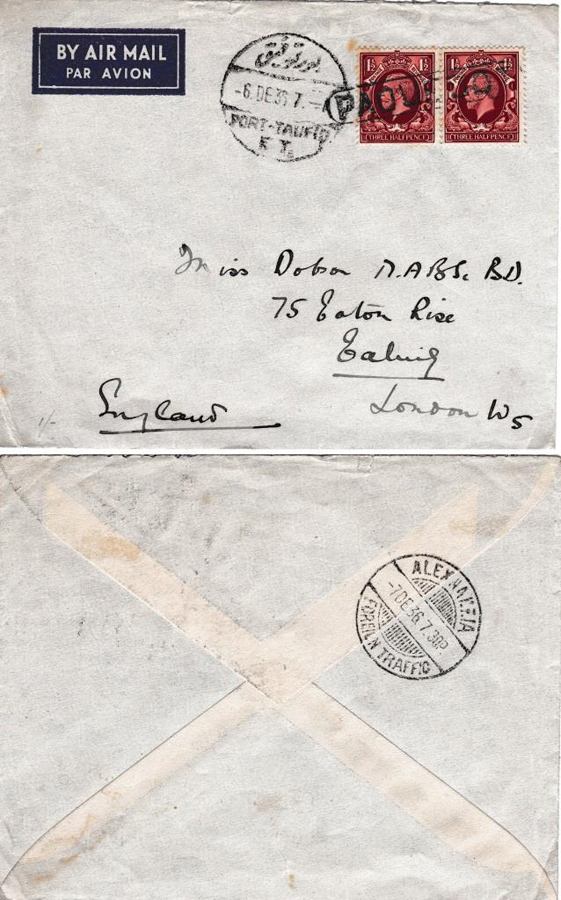 BY AIR MAIL
PAR AVION
بور توفيق
-6.DE.36.7.-
PORT-TAUFIQ
PAQUEBOT
1½ 1½ 1½ 1½
THREE HALFPENCE THREE HALFPENCE
Miss Dobson M.A BSc. BD.
75 Eaton Rise
Ealing
London W5
England
1/-
ALEXANDRIA
-7DE36 7.30P
FOREIGN TRAFFIC